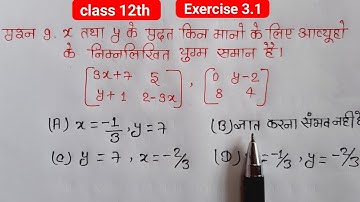 class 12th Exercise 3.1
प्रश्न 9. x तथा y के प्रदत्त किन मानो के लिए आव्यूहो
के निम्नलिखित युग्म समान है।
[3x+7 5] , [0 y-2]
[y+1 2-3x] [8 4]
(A) x = -1/3 , y = 7 (B) ज्ञात करना संभव नहीं है
(C) y = 7 , x = -2/3 (D) = -1/3 , y = -2/3